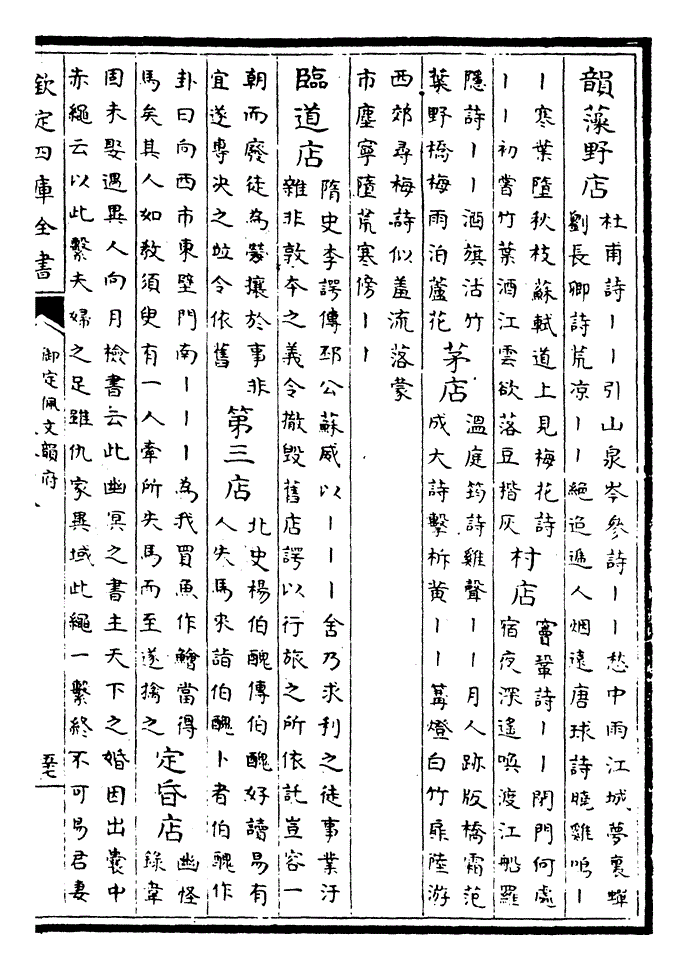 韻藻野店
杜甫詩丨丨引山泉岑參詩丨丨愁中雨江城夢裏蟬
劉長卿詩荒凉丨丨絕迢遞人烟遠唐球詩曉雞鳴丨
丨寒葉墮秋枝蘇軾道上見梅花詩
丨丨初嘗竹葉酒江雲欲落豆揩灰
村店
竇鞏詩丨丨閉門何處
宿夜深遙喚渡江船羅
隱詩丨丨酒旗沽竹
葉野橋梅雨泊蘆花
茅店
溫庭筠詩雞聲丨丨月人跡版橋霜范
成大詩擊柝黄丨丨篝燈白竹扉陸游
西郊尋梅詩似羞流落蒙
市塵寧墮荒寒傍丨丨
臨道店
隋史李諤傳邳公蘇威以丨丨丨舍乃求利之徒事業汙
雜非敦本之義令撤毀舊店諤以行旅之所依託豈容一
朝而廢徒為勞攘於事非
宜遂專決之竝令依舊
第三店
北史楊伯醜傳伯醜好讀易有
人失馬來詣伯醜卜者伯醜作
卦曰向西市東壁門南丨丨丨為我買魚作鱠當得
馬矣其人如教須臾有一人牽所失馬而至遂擒之
定昏店
幽怪
錄韋
固未娶遇異人向月檢書云此幽冥之書主天下之婚因出囊中
赤繩云以此繫夫婦之足雖仇家異域此繩一繫終不可易君妻
欽定四庫全書
御定佩文韻府